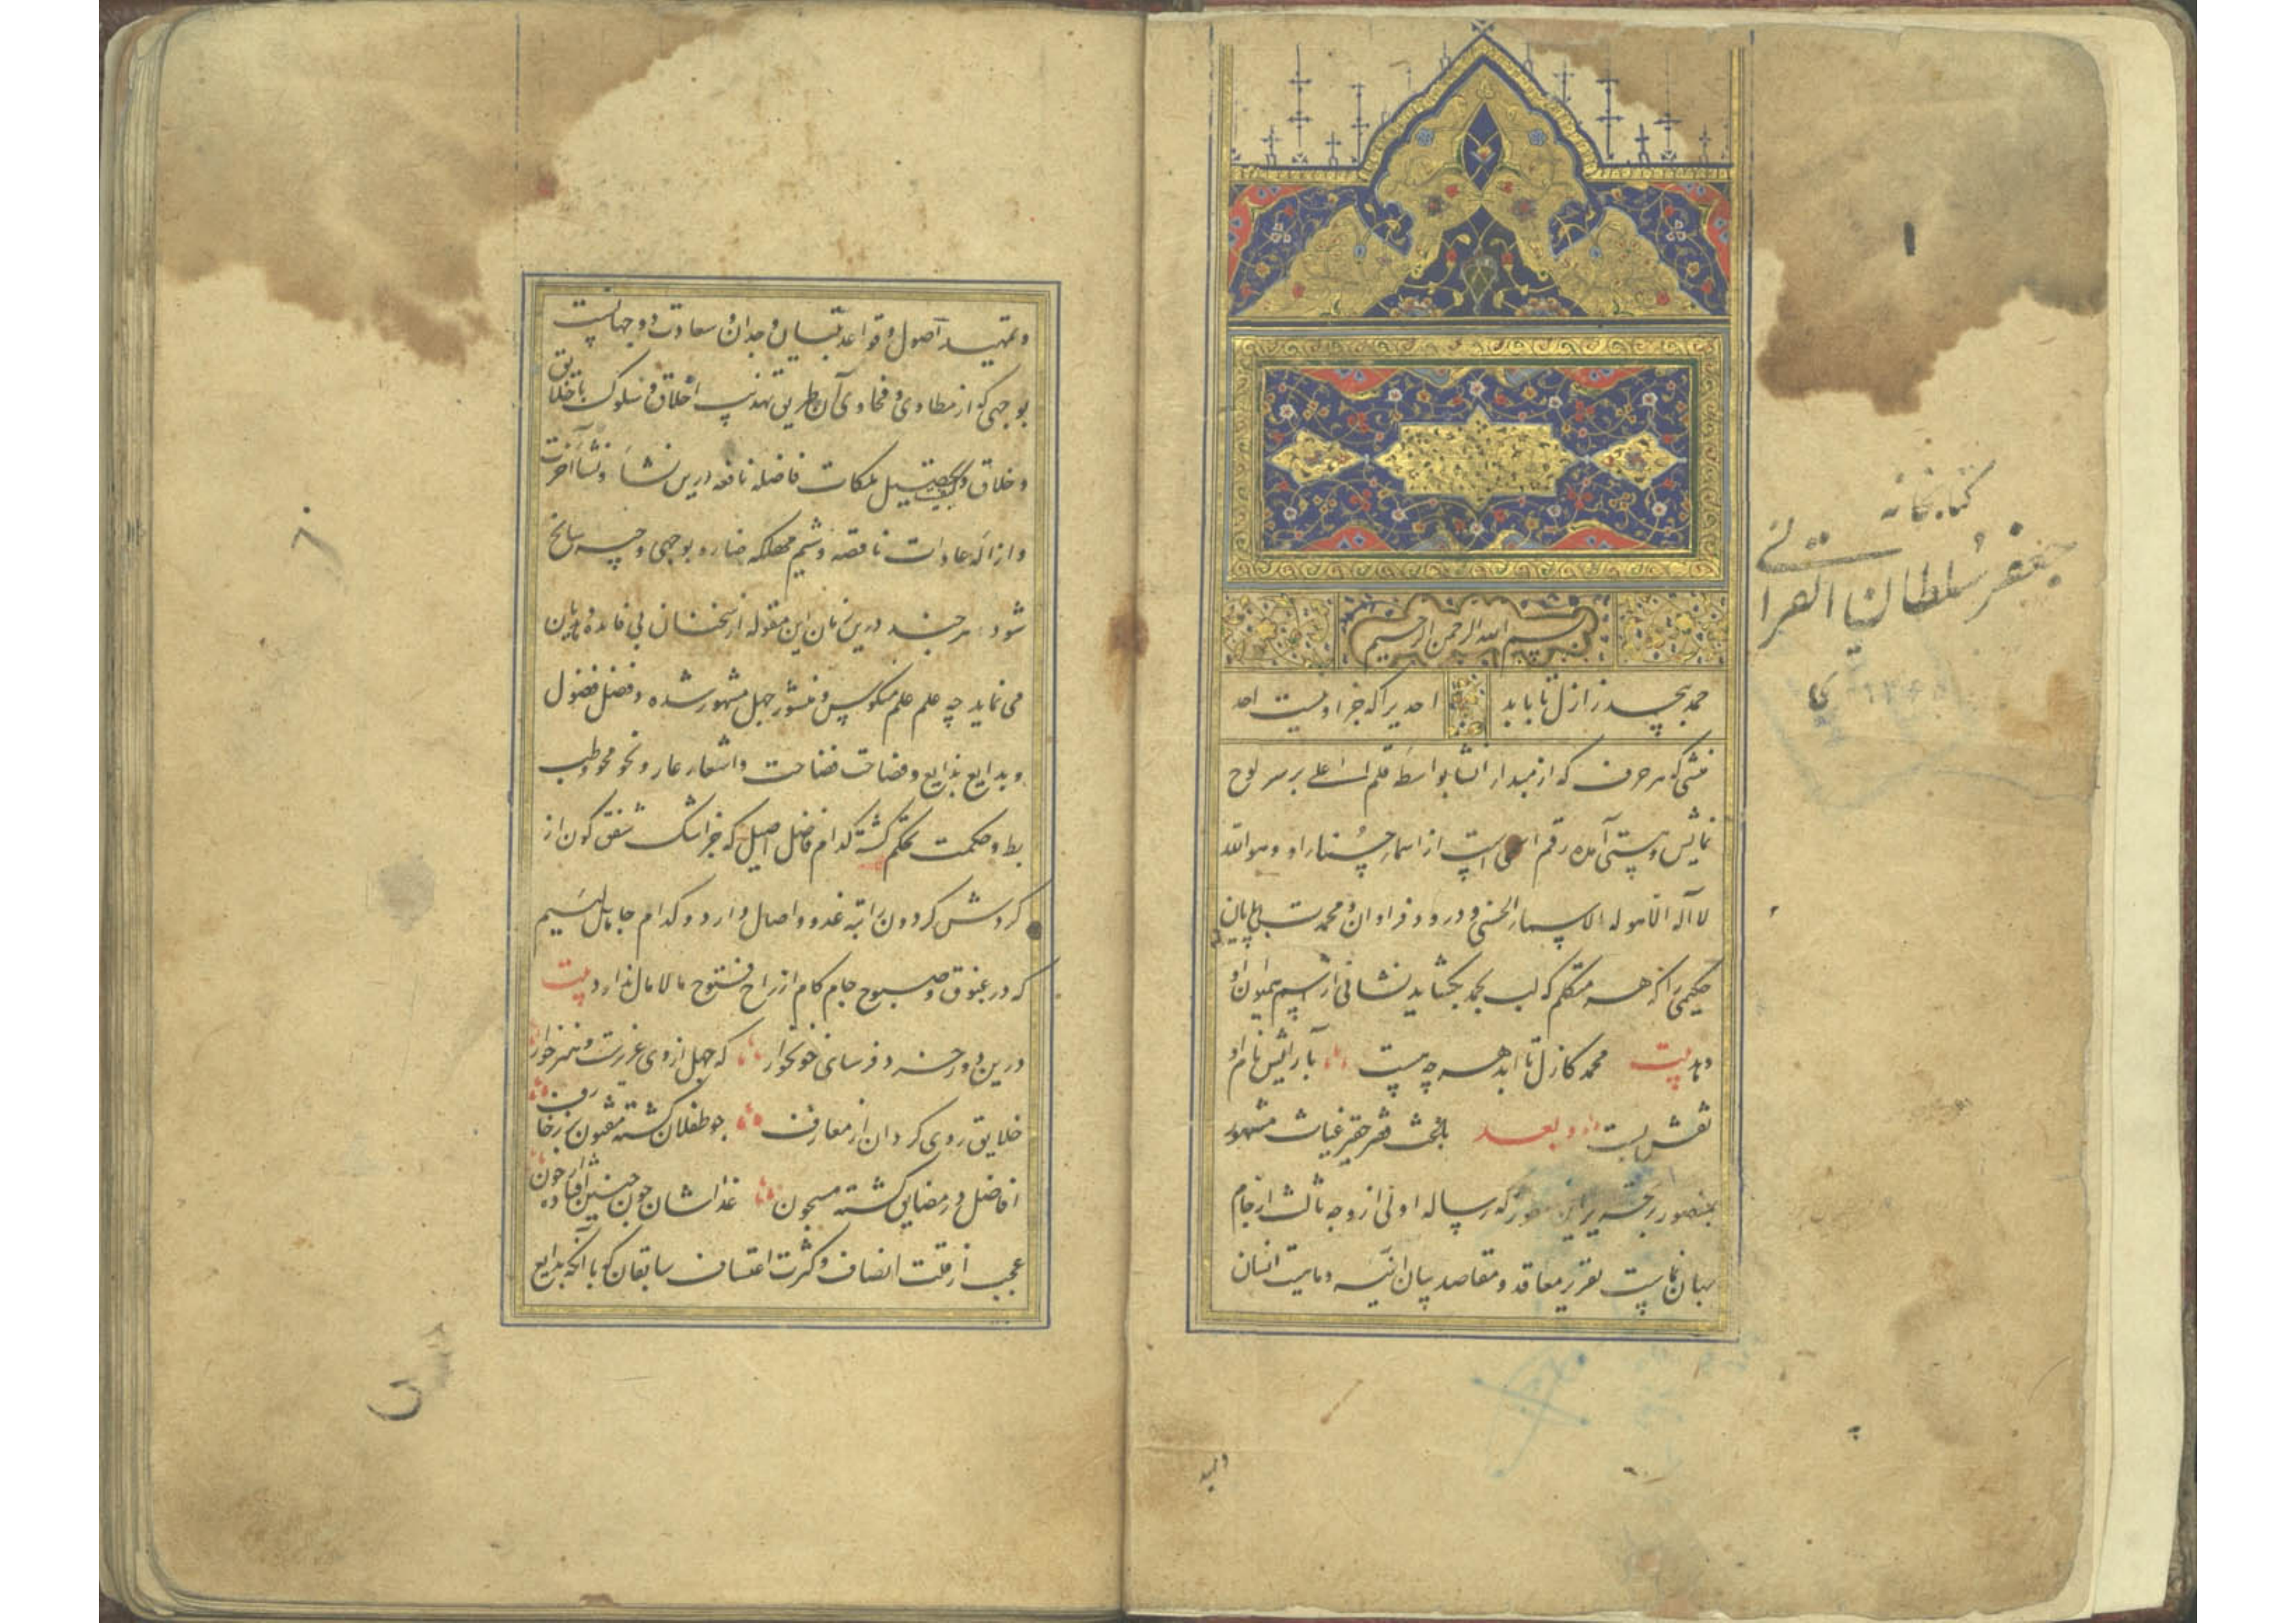 بسم الله الرحمن الرحیم
حمد بیحد ز ازل تا بابد احدیرا که جز او نیست احد
منشی که هر حرف که از مبداء انشا بواسطه قلم اعلی بر سر لوح
نمایش و هستی آمده رقم اسمی است از اسماء حسنای او و هو الله
لا اله الا هو له الاسماء الحسنی و درود فراوان و محمدت بی پایان
حکیمی را که هر متکلم که لب بحمد بگشاید نشانی از اسم همایون او
دهد بیت محمد کازل تا ابد هر چه هست بآرایش نام او
نقش بست و بعد باعث فقیر حقیر غیاث مشهور
بمنصور بر تحریر این که رساله اولی از وجه ثالث از جام
جهان نماست تقریر معاقد و مقاصد بیان انیّه و ماهیت انسان
کتابخانه
جعفر سلطان القرائی
۱
و تمهید اصول و قواعد تبیان وجدان سعادت دو جهانست
بوجهی که از مطاوی و فحاوی آن طریق تهذیب اخلاق و سلوک با خلایق
و خلاق و تحصیل ملکات فاضله نافعه درین نشأ و نشأ آخرت
و ازاله عادات ناقصه و شیم مهلکه ضاره بوجهی وجیه سانح
شود هر چند درین زمان این مقوله از سخنان بی فایده
می نماید چه علم علم منکوس و منشور جهل مشهور شده و فضل فضول
و بدایع بذایع و فصاحت فضاحت و اشعار عار و نحو محو و طب
بط و حکمت تحکم گشته کدام فاضل اصیل که جز اشک شفق گون از
گردش گردون راتبه غدو و اصال دارد و کدام جاهل لئیم
که در غبوق و صبوح جام کام از راح فتوح مالامال ندارد بیت
درین دوران فرسای خونخوار که جهل از وی عزیزست و هنر خوار
خلایق روی گردان از معارف چو طفلان گشته مفتون زخارف
افاضل در مضایق گشته مسجون غذاشان چون جنین افتاده خون
عجب از قلت انصاف و کثرت اعتساف سابقان که با آنکه بدایع